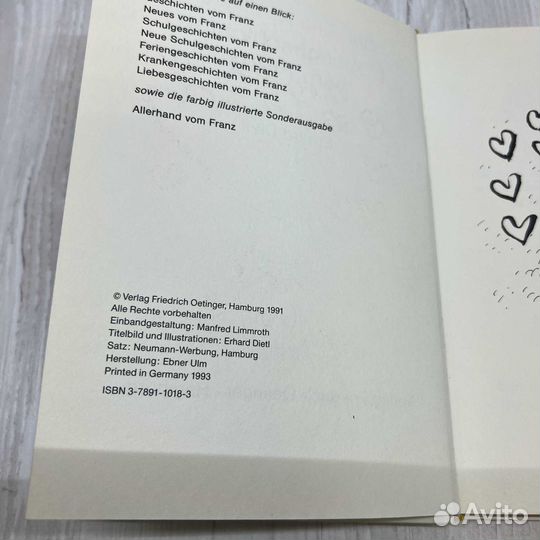 auf einen Blick:
Geschichten vom Franz
Neues vom Franz
Schulgeschichten vom Franz
Neue Schulgeschichten vom Franz
Feriengeschichten vom Franz
Krankengeschichten vom Franz
Liebesgeschichten vom Franz
sowie die farbig illustrierte Sonderausgabe
Allerhand vom Franz
© Verlag Friedrich Oetinger, Hamburg 1991
Alle Rechte vorbehalten
Einbandgestaltung: Manfred Limmroth
Titelbild und Illustrationen: Erhard Dietl
Satz: Neumann-Werbung, Hamburg
Herstellung: Ebner Ulm
Printed in Germany 1993
ISBN 3-7891-1018-3
Avito